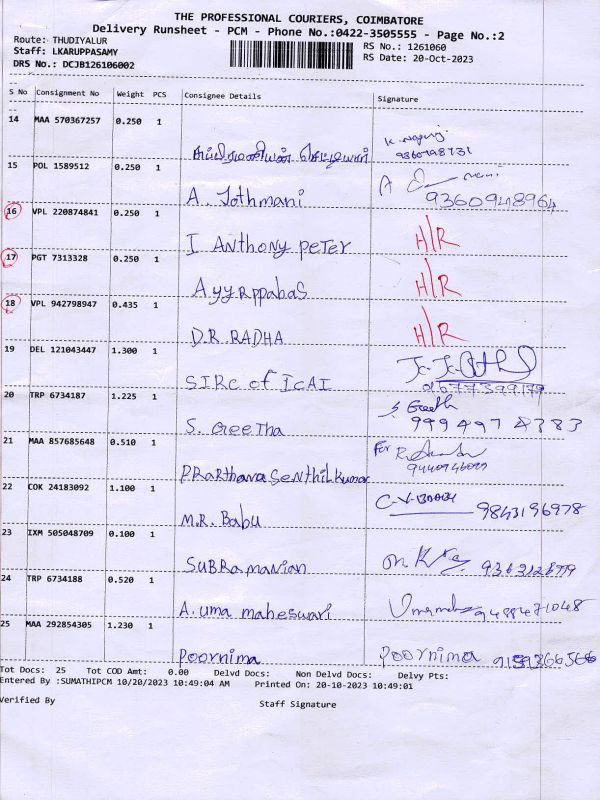 THE PROFESSIONAL COURIERS, COIMBATORE
Delivery Runsheet - PCM - Phone No.:0422-3505555 - Page No.:2
Route: THUDIYALUR
RS No.: 1261060
Staff: LKARUPPASAMY
RS Date: 20-Oct-2023
DRS No.: DCJB126106002
S No Consignment No Weight PCS Consignee Details Signature
14 MAA 570367257 0.250 1
15 POL 1589512 0.250 1
A. Jothmani 9360948964
16 VPL 220874841 0.250 1
I ANthoNy PeTER H/R
17 PGT 7313328 0.250 1
Ayyappabas H/R
18 VPL 942798947 0.435 1
D.R. RADHA H/R
19 DEL 121043447 1.300 1
SIRC of ICAI
20 TRP 6734187 1.225 1
S. GeeTha
21 MAA 857685648 0.510 1
PRaRthana Senthilkumar For
22 COK 24183092 1.100 1
M.R. Babu 9843196978
23 IXM 505048709 0.100 1
SUBRamanian
24 TRP 6734188 0.520 1
A. uma maheswari 9488471048
25 MAA 292854305 1.230 1
Poornima Poornima
Tot Docs: 25 Tot COD Amt: 0.00 Delvd Docs: Non Delvd Docs: Delvy Pts:
Entered By :SUMATHIPCM 10/20/2023 10:49:04 AM Printed On: 20-10-2023 10:49:01
Verified By Staff Signature